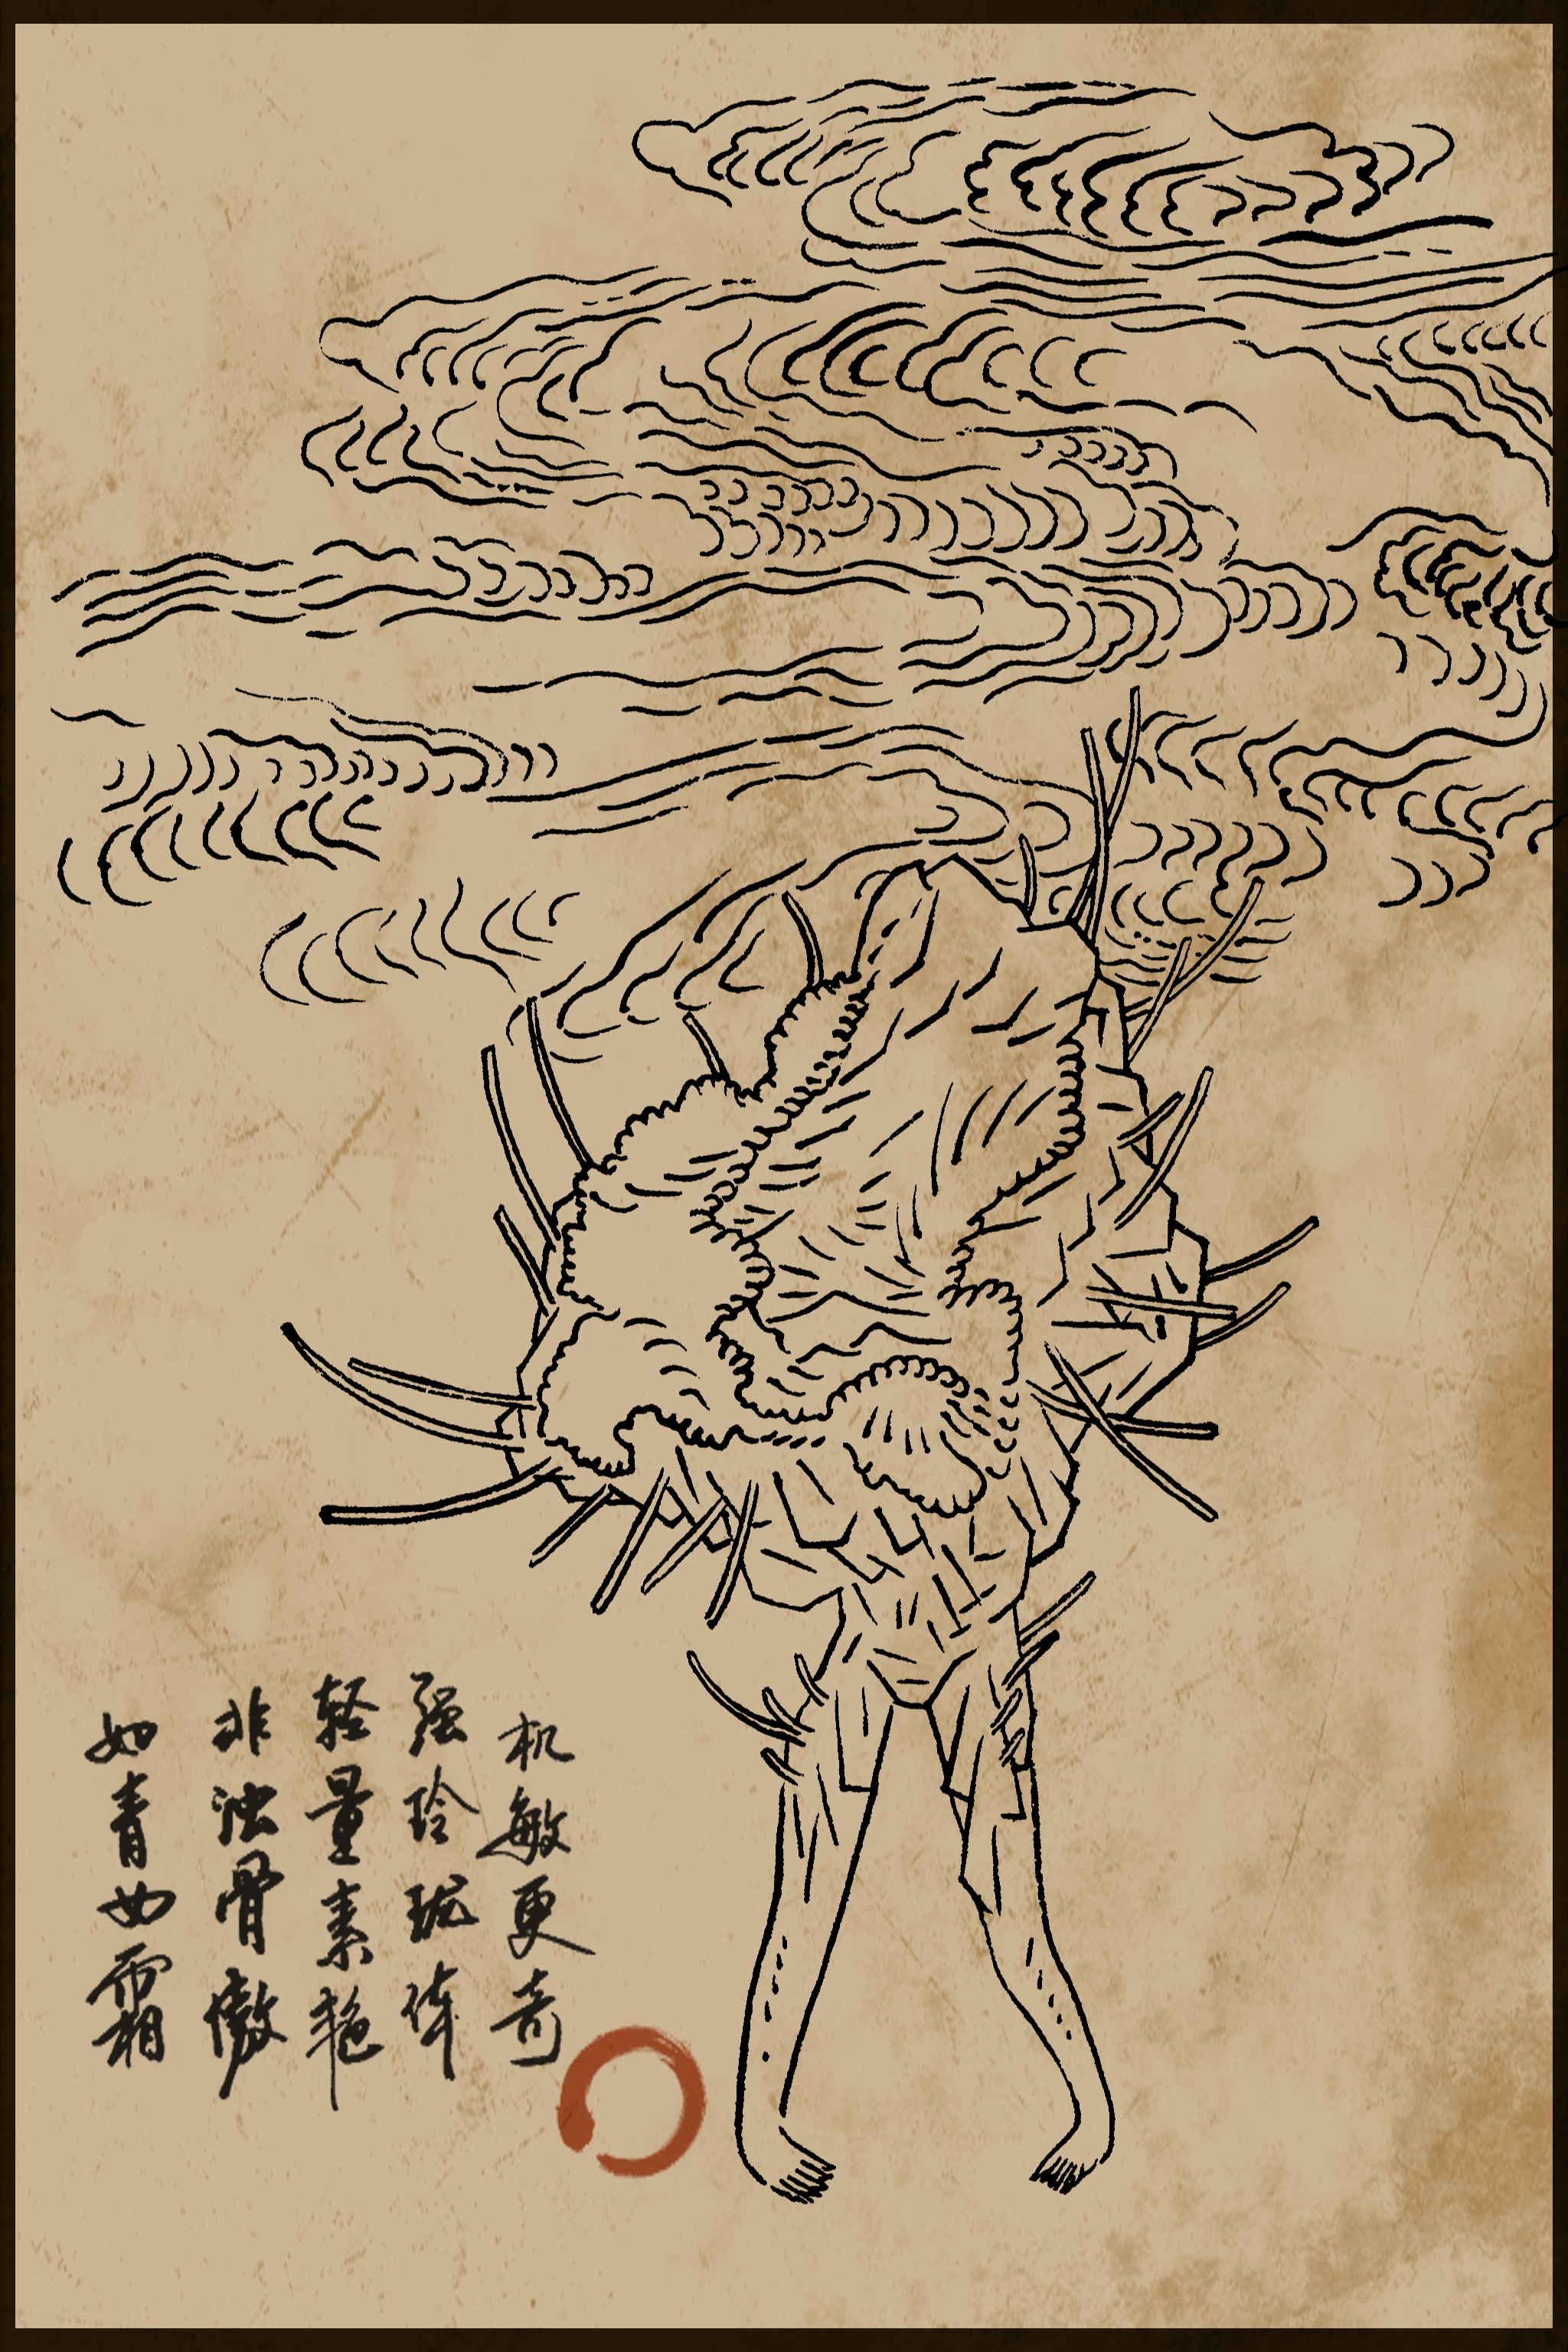 机敏更奇
强玲珑体
轻量素艳
非浊骨傲
如青女霜